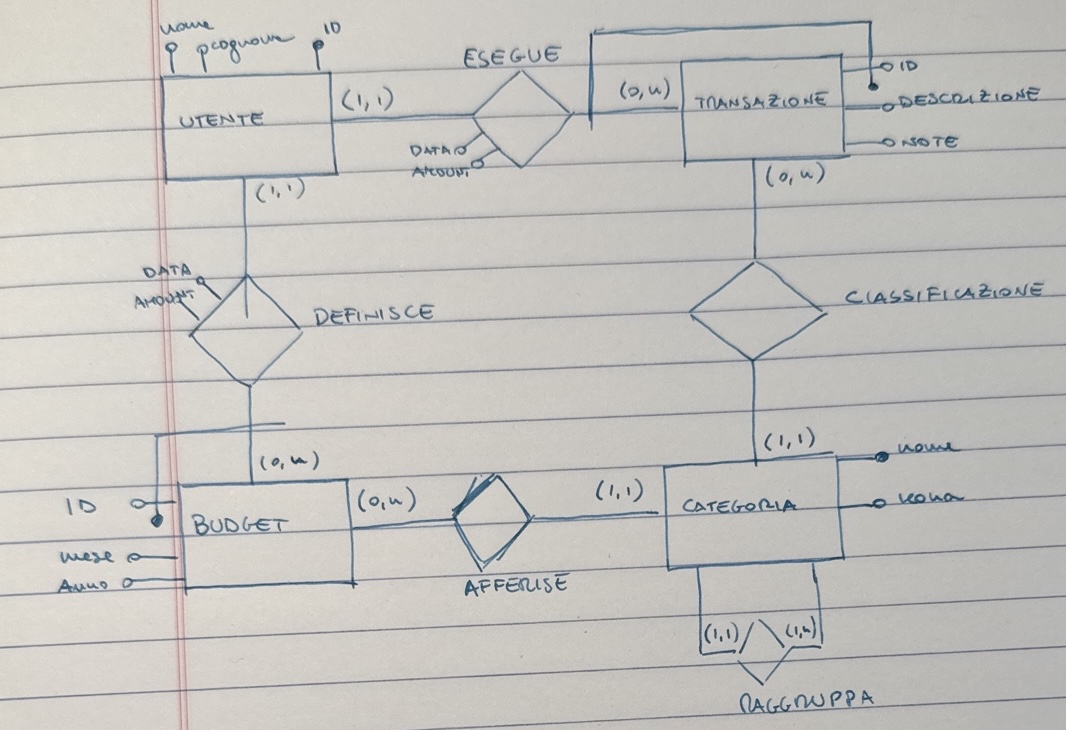 nome
pcognome
ID
ESEGUE
UTENTE
(1,1)
(0,n)
TRANSAZIONE
ID
DESCRIZIONE
NOTE
DATA
AMOUNT
(1,1)
(0,n)
DATA
AMOUNT
DEFINISCE
CLASSIFICAZIONE
(0,n)
(1,1)
nome
ID
BUDGET
(0,n)
(1,1)
CATEGORIA
mese
Anno
AFFERISE
(1,1)
(1,n)
RAGGRUPPA